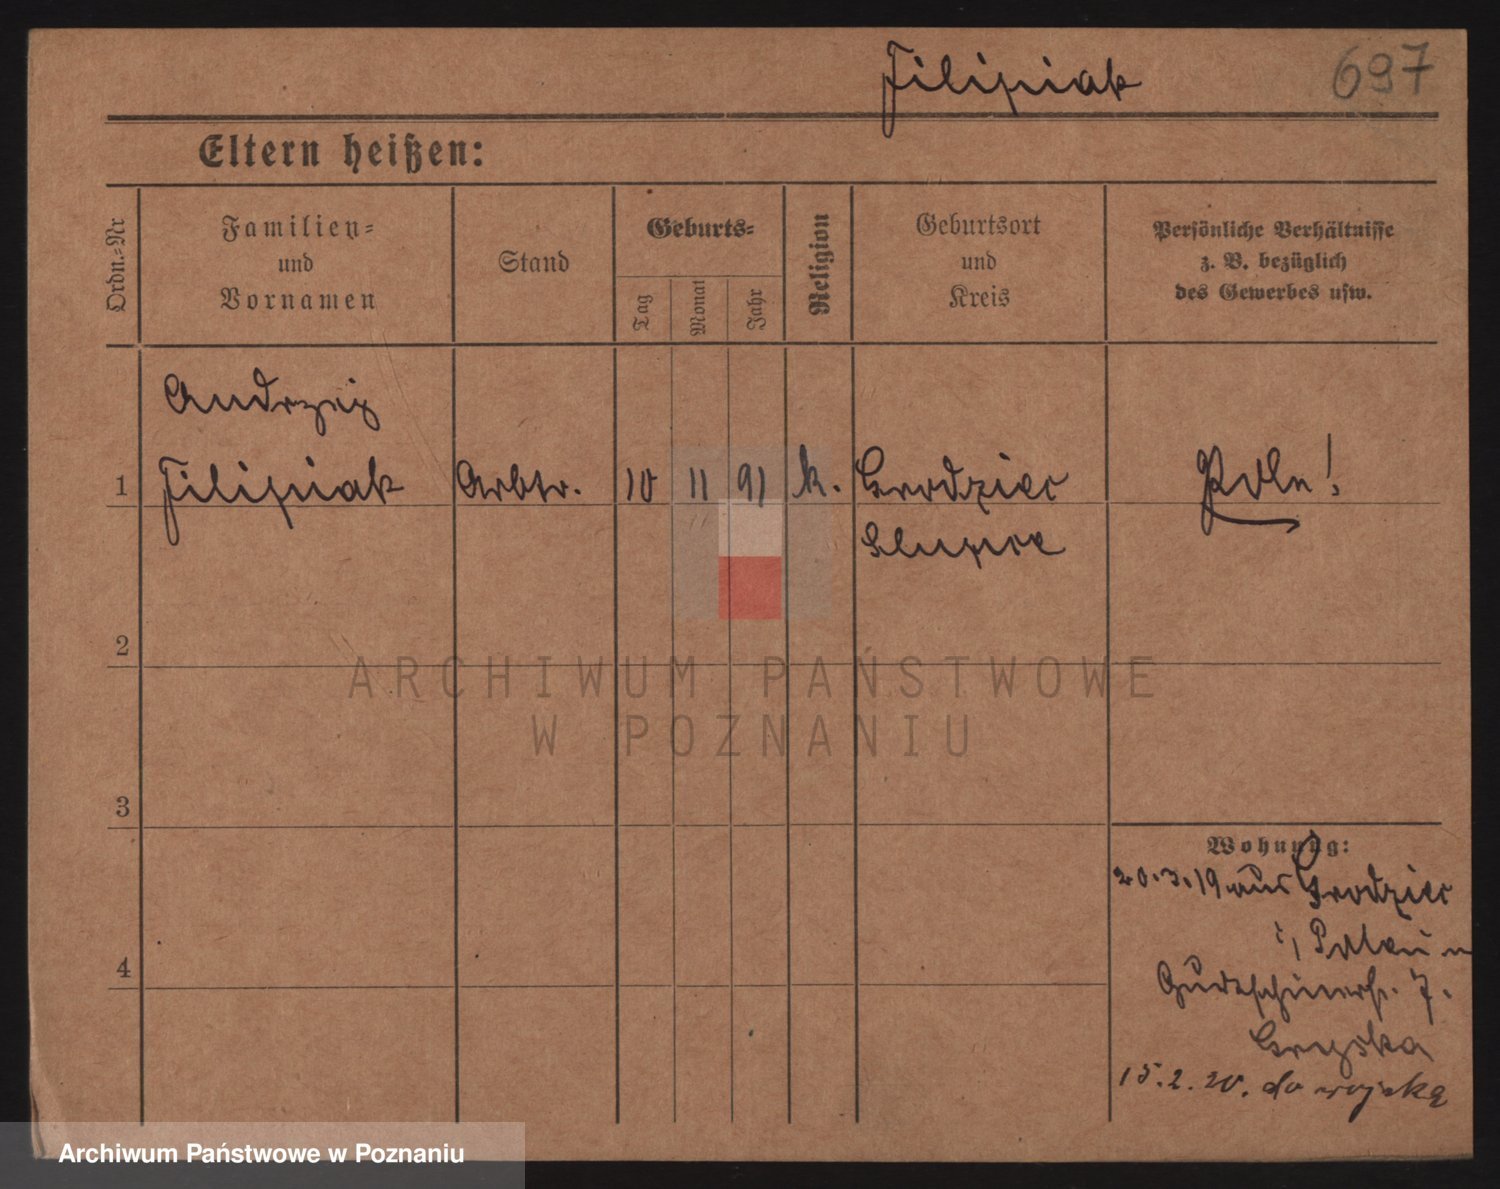 Filipiak 697
Eltern heißen:
Ordn.=Nr
Familien=
und
Vornamen
Stand
Geburts=
Tag
Monat
Jahr
Religion
Geburtsort
und
Kreis
Persönliche Verhältnisse
z. B. bezüglich
des Gewerbes usw.
Andrzej
1 Filipiak Arbtr. 10 11 91 k. Grodziec Pole!
Slupca
2
ARCHIWUM PAŃSTWOWE
W POZNANIU
3
Wohnung:
20.3.19 aus Grodziec
i, Polen
4
7.
Gryska
15.2.20. do wojska
Archiwum Państwowe w Poznaniu